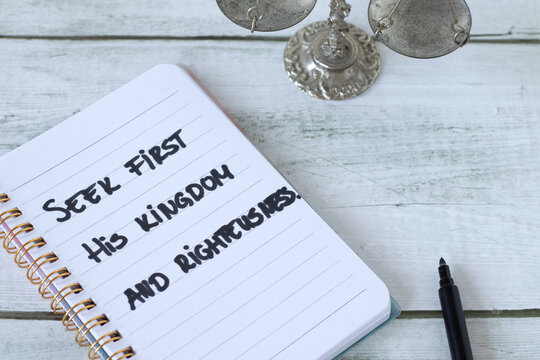 SEEK FIRST
HIS KINGDOM
AND RIGHTEUSNESS.